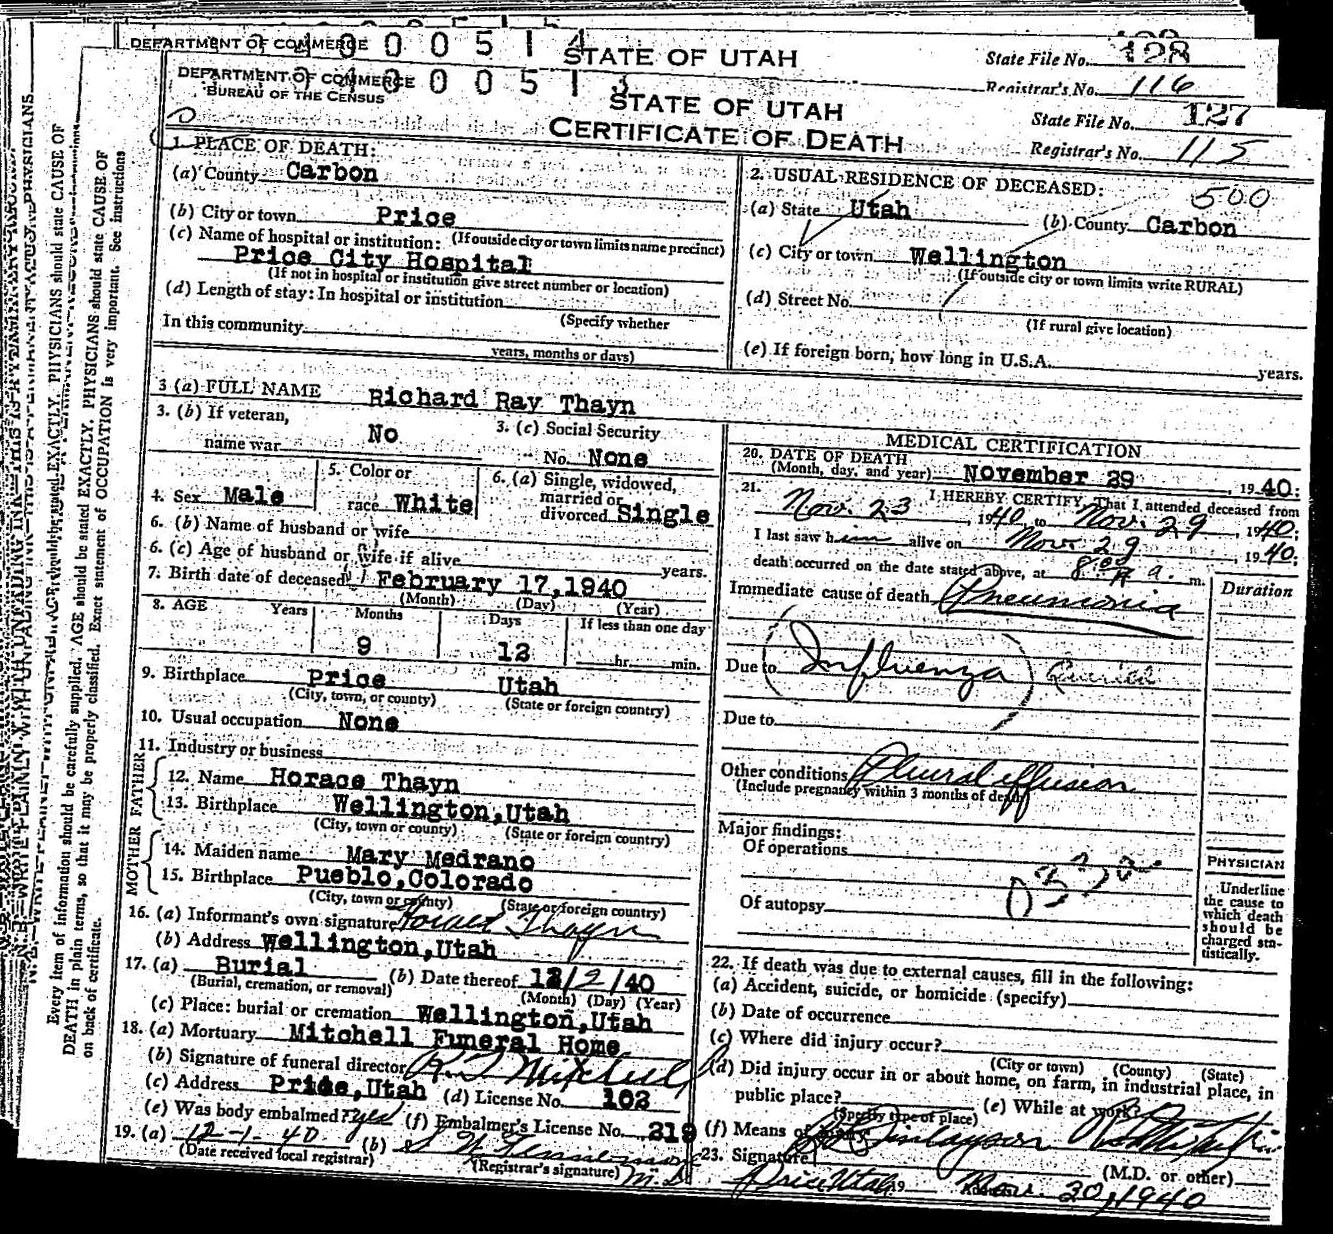 DEPARTMENT OF COMMERCE
4 0 0 0 5 1 4
STATE OF UTAH
State File No. 128
Registrar's No. 116
DEPARTMENT OF COMMERCE
BUREAU OF THE CENSUS
4 0 0 0 5 1 3
STATE OF UTAH
CERTIFICATE OF DEATH
State File No. 127
Registrar's No. 115
1. PLACE OF DEATH:
(a) County Carbon
(b) City or town Price
(c) Name of hospital or institution: (If outside city or town limits name precinct)
Price City Hospital
(If not in hospital or institution give street number or location)
(d) Length of stay: In hospital or institution
(Specify whether
In this community
years, months or days)
2. USUAL RESIDENCE OF DECEASED: 500
(a) State Utah (b) County Carbon
(c) City or town Wellington
(If outside city or town limits write RURAL)
(d) Street No.
(If rural give location)
(e) If foreign born, how long in U.S.A. years.
3 (a) FULL NAME Richard Ray Thayn
3. (b) If veteran, name war No
3. (c) Social Security No. None
4. Sex Male
5. Color or race White
6. (a) Single, widowed, married or divorced Single
6. (b) Name of husband or wife
6. (c) Age of husband or wife if alive years.
7. Birth date of deceased February 17,1940
(Month) (Day) (Year)
8. AGE Years Months Days If less than one day
9 12 hr. min.
9. Birthplace Price Utah
(City, town, or county) (State or foreign country)
10. Usual occupation None
11. Industry or business
FATHER
12. Name Horace Thayn
13. Birthplace Wellington,Utah
(City, town or county) (State or foreign country)
MOTHER
14. Maiden name Mary Medrano
15. Birthplace Pueblo,Colorado
(City, town or county) (State or foreign country)
16. (a) Informant's own signature Horace Thayn
(b) Address Wellington,Utah
17. (a) Burial (b) Date thereof 12/2/40
(Burial, cremation, or removal) (Month) (Day) (Year)
(c) Place: burial or cremation Wellington,Utah
18. (a) Mortuary Mitchell Funeral Home
(b) Signature of funeral director Mitchell
(c) Address Price,Utah (d) License No. 102
(e) Was body embalmed? yes (f) Embalmer's License No. 219
19. (a) 12-1-40 (b) M.D.
(Date received local registrar) (Registrar's signature)
MEDICAL CERTIFICATION
20. DATE OF DEATH
(Month, day, and year) November 29, 1940:
21. I HEREBY CERTIFY, That I attended deceased from
Nov. 23, 1940, to Nov. 29, 1940;
I last saw him alive on Nov. 29, 1940;
death occurred on the date stated above, at 8:00 a. m.
Immediate cause of death Pneumonia
Duration
Due to (Influenza)
Due to
Other conditions Plural effusion
(Include pregnancy within 3 months of death)
Major findings:
Of operations
Of autopsy
PHYSICIAN
Underline
the cause to
which death
should be
charged sta-
tistically.
22. If death was due to external causes, fill in the following:
(a) Accident, suicide, or homicide (specify)
(b) Date of occurrence
(c) Where did injury occur?
(City or town) (County) (State)
(d) Did injury occur in or about home, on farm, in industrial place, in
public place? (e) While at work?
(Specify type of place)
(f) Means of
23. Signature
(M.D. or other)
Price Utah Nov. 30, 1940
Every item of information should be carefully supplied. AGE should be stated EXACTLY. PHYSICIANS should state CAUSE OF
DEATH in plain terms, so that it may be properly classified. Exact statement of OCCUPATION is very important. See instructions
on back of certificate.